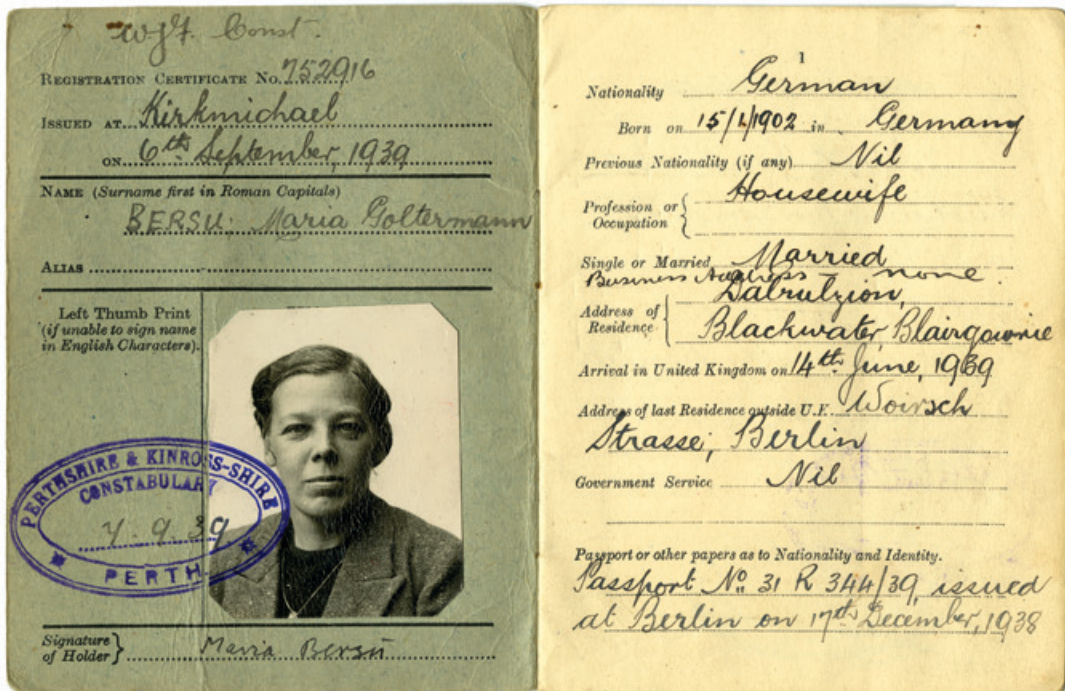 Const.
REGISTRATION CERTIFICATE No. 752916
ISSUED AT Kirkmichael
ON 6th September, 1939
NAME (Surname first in Roman Capitals)
BERSU. Maria Goltermann
ALIAS
Left Thumb Print
(if unable to sign name
in English Characters).
PERTHSHIRE & KINROSS-SHIRE
CONSTABULARY
7.9.39
PERTH
Signature
of Holder } Maria Bersu
1
Nationality German
Born on 15/1/1902 in Germany
Previous Nationality (if any) Nil
Profession or
Occupation { Housewife
Single or Married Married
Business Address – none
Address of
Residence { Dalrulzion,
Blackwater Blairgowrie
Arrival in United Kingdom on 14th June, 1939
Address of last Residence outside U.K. Woirsch
Strasse, Berlin
Government Service Nil
Passport or other papers as to Nationality and Identity.
Passport No. 31 R 344/39, issued
at Berlin on 17th December, 1938